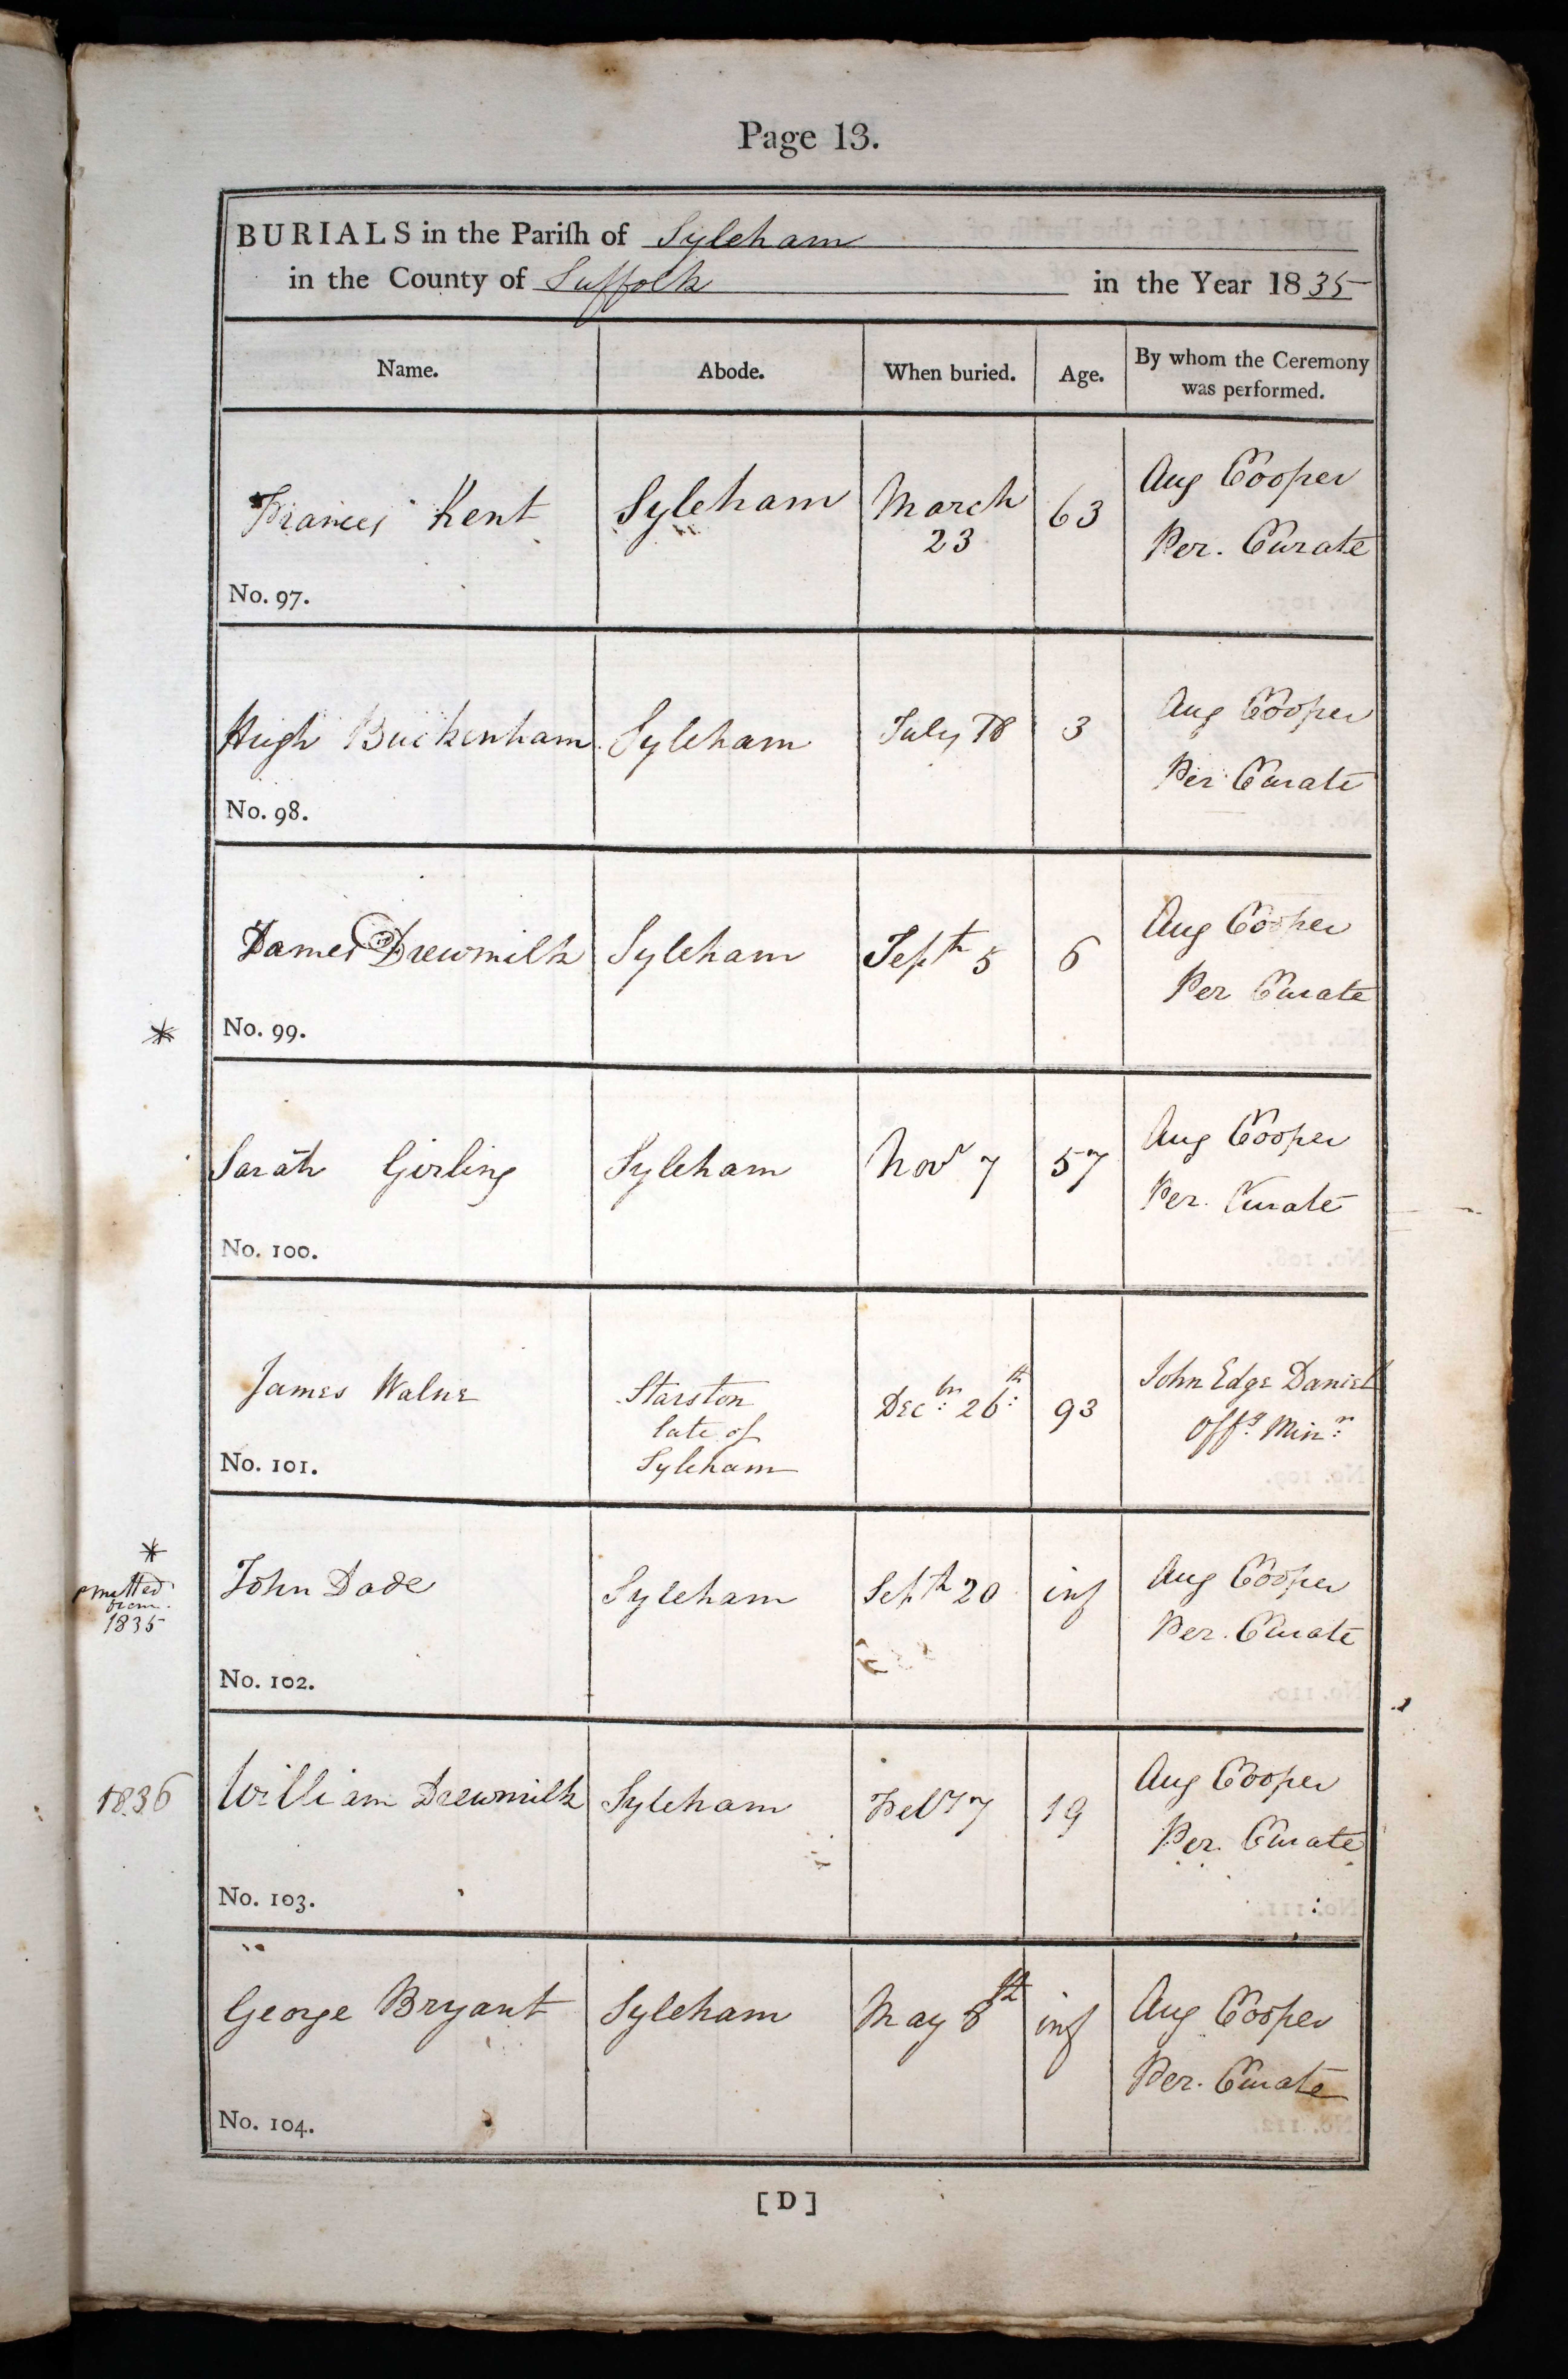 Page 13.
BURIALS in the Pariſh of Syleham
in the County of Suffolk in the Year 1835
Name. Abode. When buried. Age. By whom the Ceremony
was performed.
Frances Kent Syleham March 63 Aug Cooper
23 Per. Curate
No. 97.
Hugh Buckenham Syleham July 18 3 Aug Cooper
Per Curate
No. 98.
James Drewmilk Syleham Septh 5 6 Aug Cooper
Per Curate
* No. 99.
Sarah Girling Syleham Novr 7 57 Aug Cooper
Per. Curate
No. 100.
James Walne Starston Decbr: 26th: 93 John Edge Daniel
late of Offg: Minr:
Syleham
No. 101.
*
omitted from 1835
John Dade Syleham Septh 20 inf Aug Cooper
Per. Curate
No. 102.
1836 William Drewmilk Syleham Feby 7 19 Aug Cooper
Per. Curate
No. 103.
George Bryant Syleham May 8th inf Aug Cooper
Per. Curate
No. 104.
[D]